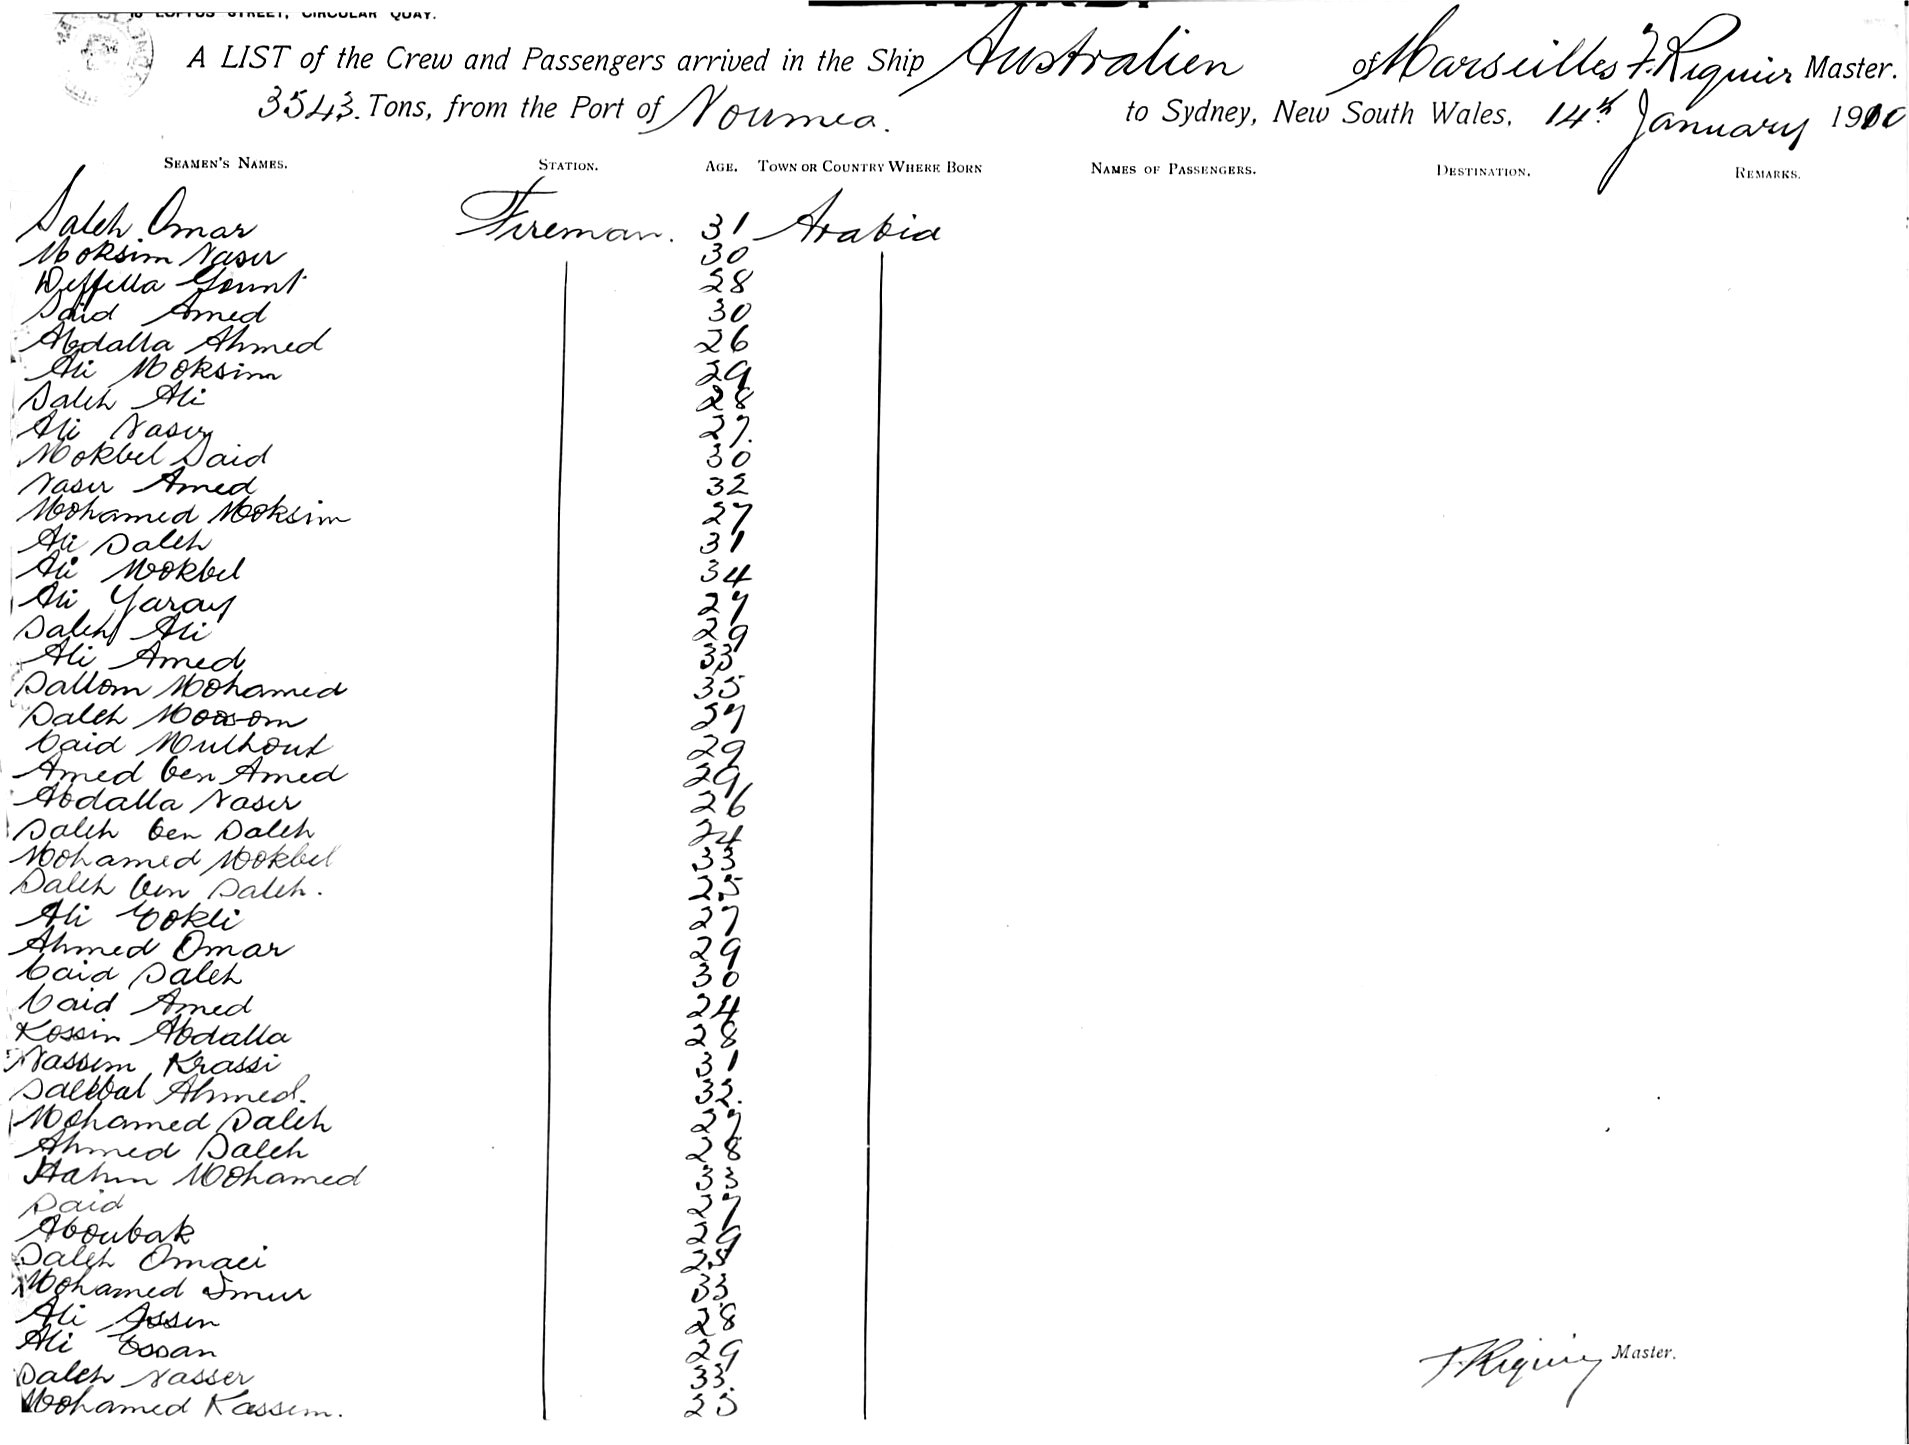 18 LOFTUS STREET, CIRCULAR QUAY.
A LIST of the Crew and Passengers arrived in the Ship Australien of Marseilles F. Riquier Master.
3543. Tons, from the Port of Noumea. to Sydney, New South Wales, 14th January 1900
SEAMEN'S NAMES. STATION. AGE. TOWN OR COUNTRY WHERE BORN NAMES OF PASSENGERS. DESTINATION. REMARKS.
Saleh Omar Fireman. 31 Arabia
Moksim Naser 30
28
Said Amed 30
Abdalla Ahmed 26
Ali Moksim 29
Saleh Ali 28
Ali Naser 27
Mokbel Said 30
Naser Amed 32
Mohamed Moksim 27
Ali Saleh 31
Ali Mokbel 34
Ali Yaray 27
Saleh Ali 29
Ali Amed 33
Sallom Mohamed 33
Saleh Moosom 27
Caid Mulhout 29
Amed ben Amed 29
Abdalla Naser 26
Saleh ben Saleh 24
Mohamed Mokbel 33
Saleh ben Saleh. 22
Ali Cokli 27
Ahmed Omar 29
Caid Saleh 30
Caid Amed 24
Kossin Abdalla 28
Nassem Krassi 31
Ahmed. 32
Mohamed Saleh 27
Ahmed Saleh 28
Hahm Mohamed 33
Said 27
Aboubak 29
Saleh Omaei
Mohamed Smur 33
Ali Assen 28
Ali Essan 29
Saleh Nasser 33
Mohamed Kassem. 23
F. Riquier Master.